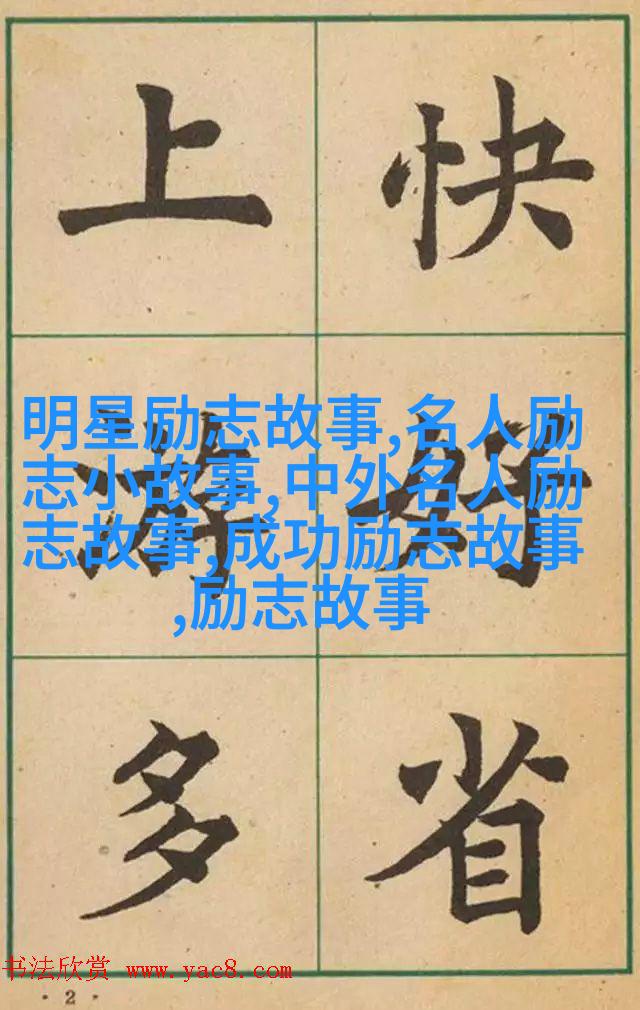 上游多
快好省
明星励志故事,名人励
志小故事,中外名人励
志故事,成功励志故事
,励志故事
书法欣赏 www.yac8.com
· 2 ·